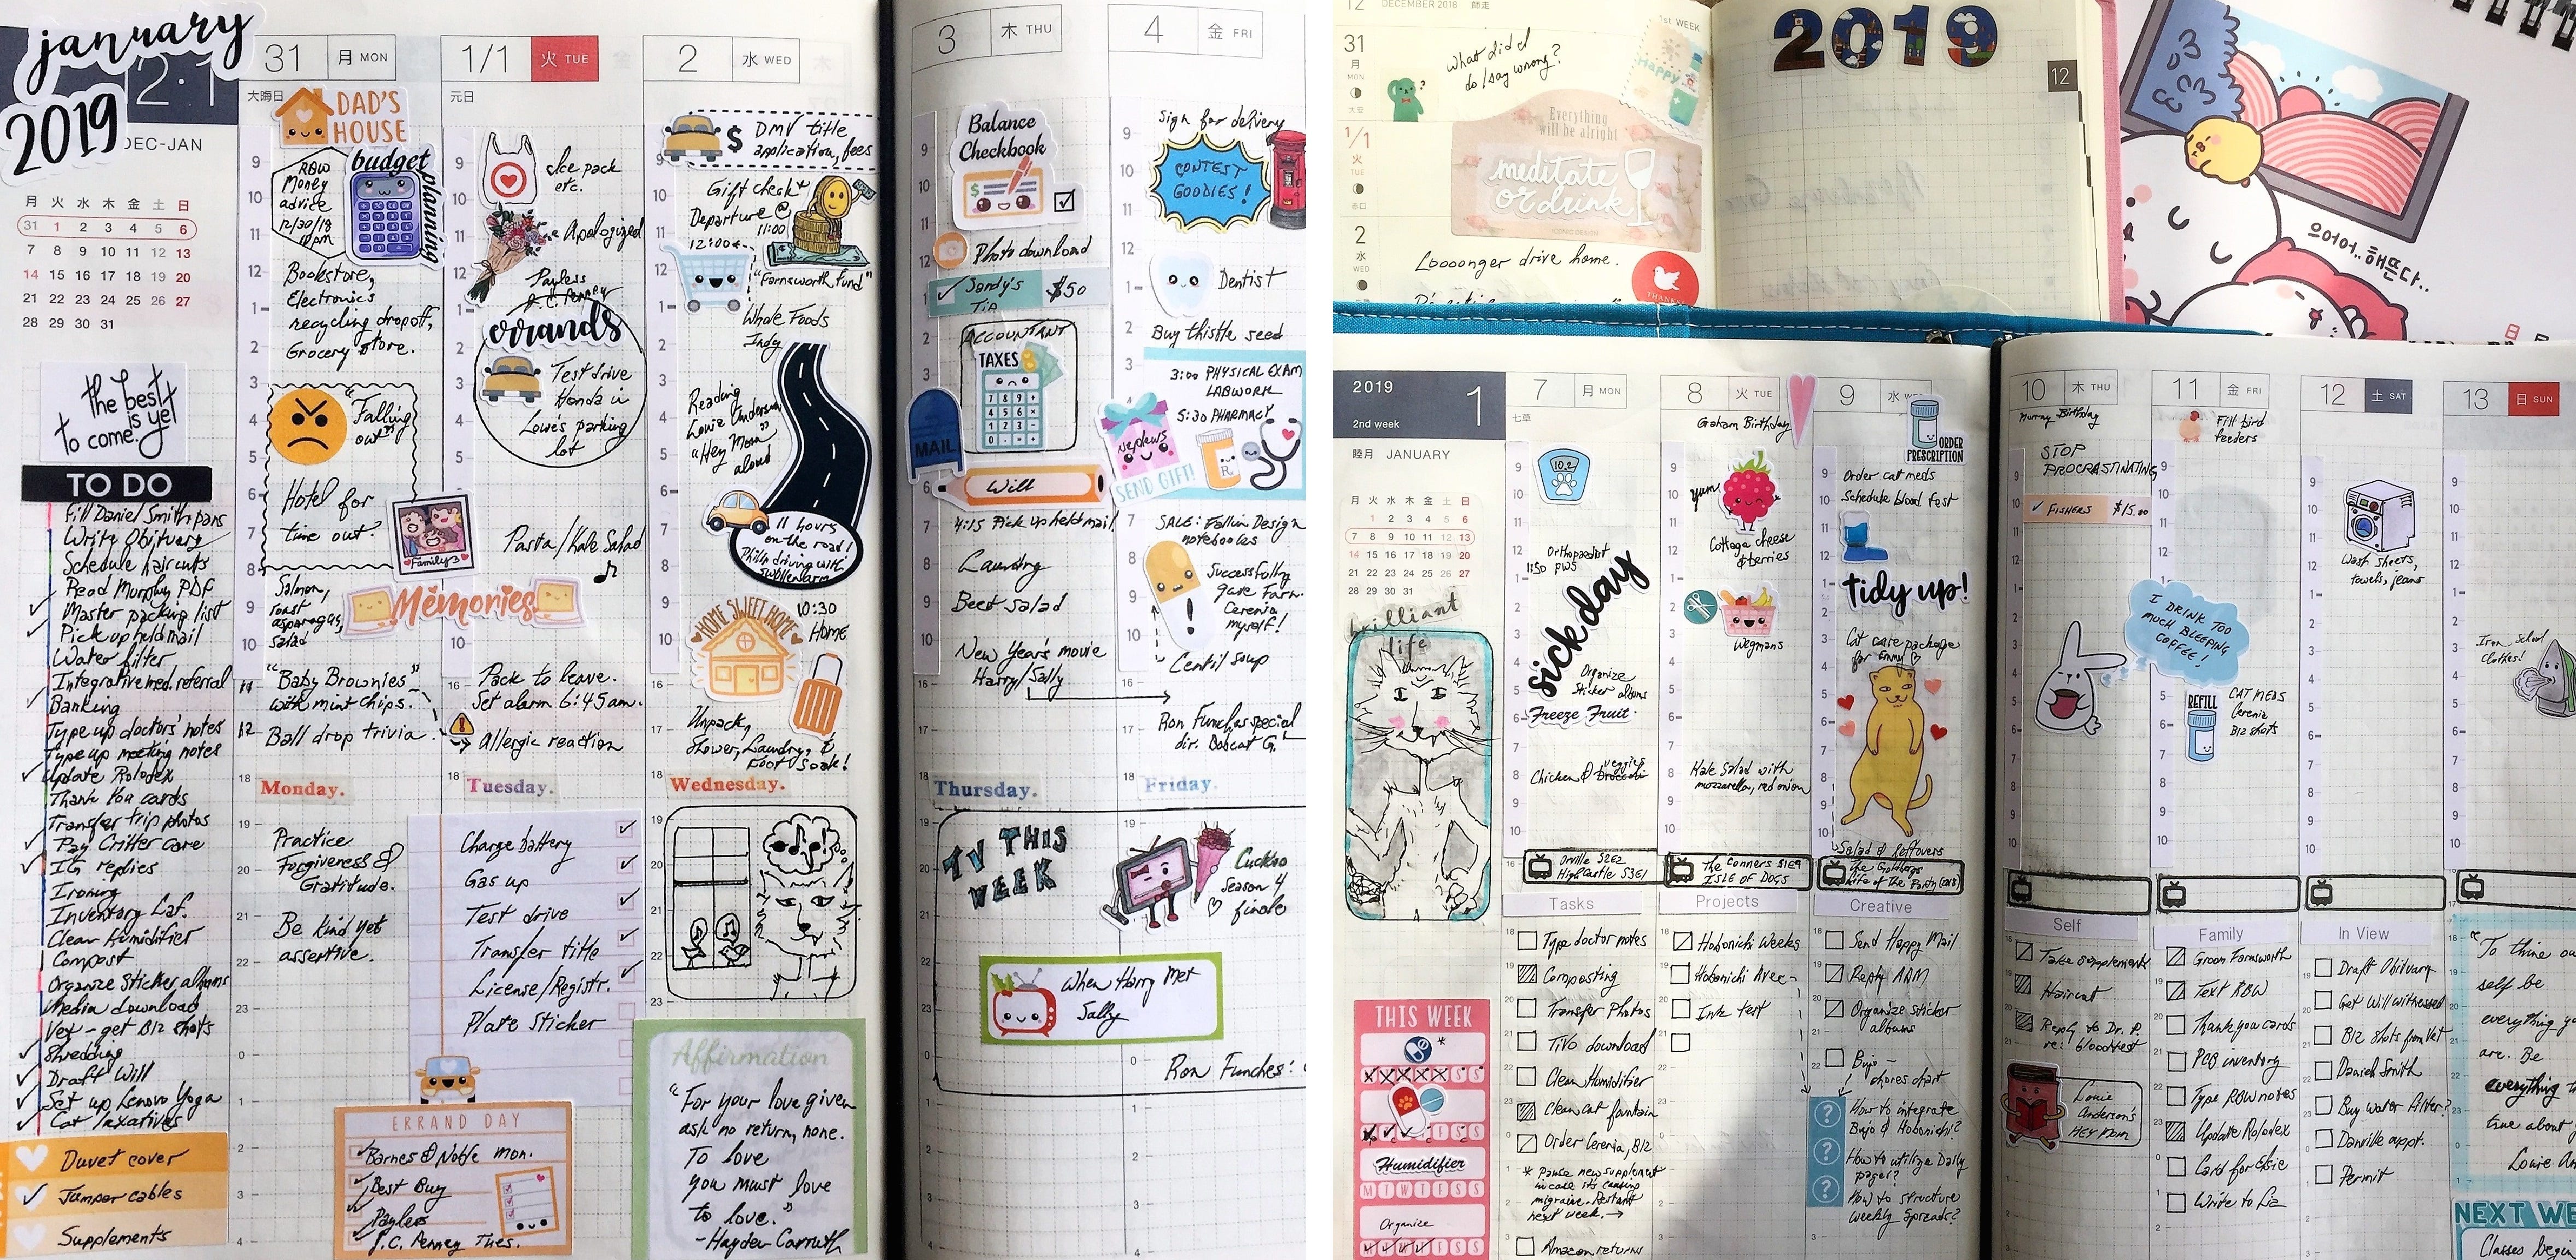 january
2019
DEC-JAN
月 火 水 木 金 土 日
31 1 2 3 4 5 6
7 8 9 10 11 12 13
14 15 16 17 18 19 20
21 22 23 24 25 26 27
28 29 30 31
the best
is yet
to come.
TO DO
Fill Daniel Smith pans
Write Obituary
Schedule haircuts
Read Murphy PDF
Master packing list
Pick up held mail
Water filter
Integrative med. referral
Banking
Type up doctors' notes
Type up meeting notes
Update Rolodex
Thank You cards
Transfer trip photos
Pay Critter care
IG replies
Ironing
Inventory Laf.
Clean Humidifier
Compost
Organize Sticker albums
Media download
Vet - get B12 shots
Shredding
Draft Will
Set up Lenovo Yoga
Cat laxatives
Duvet cover
Jumper cables
Supplements
31 月 MON
大晦日
DAD'S
HOUSE
RBW
Money
advice
12/30/18
10pm
budget
planning
Bookstore,
Electronics
recycling drop off,
Grocery store.
"Falling
out"
Hotel for
time out.
Family
Salmon,
roast
asparagus,
Salad
Memories
"Baby Brownies"
with mint chips.
Ball drop trivia.
Monday.
Practice
Forgiveness &
Gratitude.
Be kind yet
assertive.
ERRAND DAY
Barnes & Noble Mon.
Best Buy
Payless
J.C. Penney Tues.
1/1 火 TUE
元日
Ice pack
etc.
Apologized
Payless
J.C. Penney
errands
Test drive
Honda in
Lowe's parking
lot
Pasta/Kale Salad
Pack to leave.
Set alarm 6:45am.
Allergic reaction
Tuesday.
Charge battery
Gas up
Test drive
Transfer title
License/Registr.
Plate Sticker
2 水 WED
$ DMV title
application, fees
Gift check +
Departure @
11:00
12:00
"Farnsworth Fund"
Whole Foods
Indy
Reading
Louie Anderson
"Hey Mom"
aloud
11 hours
on the road!
Philip driving with
swollen arm
HOME SWEET HOME
10:30
HOME
Unpack,
Shower, Laundry, &
Foot Soak!
Wednesday.
Affirmation
"For your love given
ask no return, none.
To love
you must love
to love."
-Hayden Carruth
3 木 THU
Balance
Checkbook
Photo download
Sandy's
Tip
$50
ACCOUNTANT
TAXES
MAIL
Will
4:15 Pick up held mail
Laundry
Beet salad
New Year's movie
Harry/Sally
Thursday.
TV THIS
WEEK
When Harry Met
Sally
4 金 FRI
Sign for delivery
CONTEST
GOODIES!
Dentist
Buy thistle seed
3:00 PHYSICAL EXAM
LABWORK
5:30 PHARMACY
nephews
SEND GIFT!
SALE: Fallin Design
notebooks
Successfully
gave Farn.
Cerenia
myself!
Lentil soup
Ron Funches special
dir. Bobcat G.
Friday.
Cuckoo
Season 4
finale
Ron Funches:
12 DECEMBER 2018 師走
1st WEEK
31
月
MON
大安
What did I
do/say wrong?
Happy
Everything
will be alright
meditate
or drink
1/1
火
TUE
赤口
2
水
WED
Loooonger drive home.
THANKS
2019
12
으어어.. 해뜬다..
2019 1
2nd week
睦月 JANUARY
月 火 水 木 金 土 日
1 2 3 4 5 6
7 8 9 10 11 12 13
14 15 16 17 18 19 20
21 22 23 24 25 26 27
28 29 30 31
brilliant
life
THIS WEEK
Humidifier
M T W T F S S
Organize
7 月 MON
七草
10.2
Orthopaedist
1:50 PWS
sick day
Organize
Sticker albums
Freeze Fruit.
Chicken & Broccoli
veggies
Orville S2E2
High Castle S3E1
Tasks
Type doctor notes
Composting
Transfer Photos
TiVo download
Clean Humidifier
Clean cat fountain
Order Cerenia, B12
* Pause new supplement
in case its causing
migraine. Restart
next week. →
Amazon returns
8 火 TUE
Graham Birthday
yum
Cottage cheese
& berries
Wegmans
Kale Salad with
mozzarella, red onion
The Conners S1E9
ISLE OF DOGS
Projects
Hobonichi Weeks
Hobonichi Avec
Ink test
9 水 WED
ORDER
PRESCRIPTION
Order cat meds
Schedule blood test
tidy up!
Cat care package
for Emmy
Salad & leftovers
The Goldbergs
Life of the Party (2018)
Creative
Send Happy Mail
Reply ADM
Organize sticker
albums
Bujo -
chores chart
How to integrate
Bujo & Hobonichi?
How to utilize Daily
pages?
How to structure
weekly spreads?
10 木 THU
Murray Birthday
STOP
PROCRASTINATING
FISHERS $15.00
I DRINK TOO
MUCH BLEEPING
COFFEE!
Self
Take supplements
Haircut
Reply to Dr. P.
re: bloodtest
Louie
Anderson's
HEY MOM
11 金 FRI
Fill bird
feeders
REFILL
CAT MEDS
Cerenia
B12 shots
Family
Groom Farnsworth
Text RBW
Thank you cards
PCB inventory
Type RBW notes
Update Rolodex
Card for Elsie
Write to Liz
12 土 SAT
Wash sheets,
towels, jeans
In View
Draft Obituary
Get Will witnessed
B12 shots from Vet
Daniel Smith
Buy Water Filter?
Danville appt.
Permit
13 日 SUN
Iron school
clothes!
"To thine ow
self be
everything yo
are. Be
everything th
true about
Louie An
NEXT WE
Classes begin